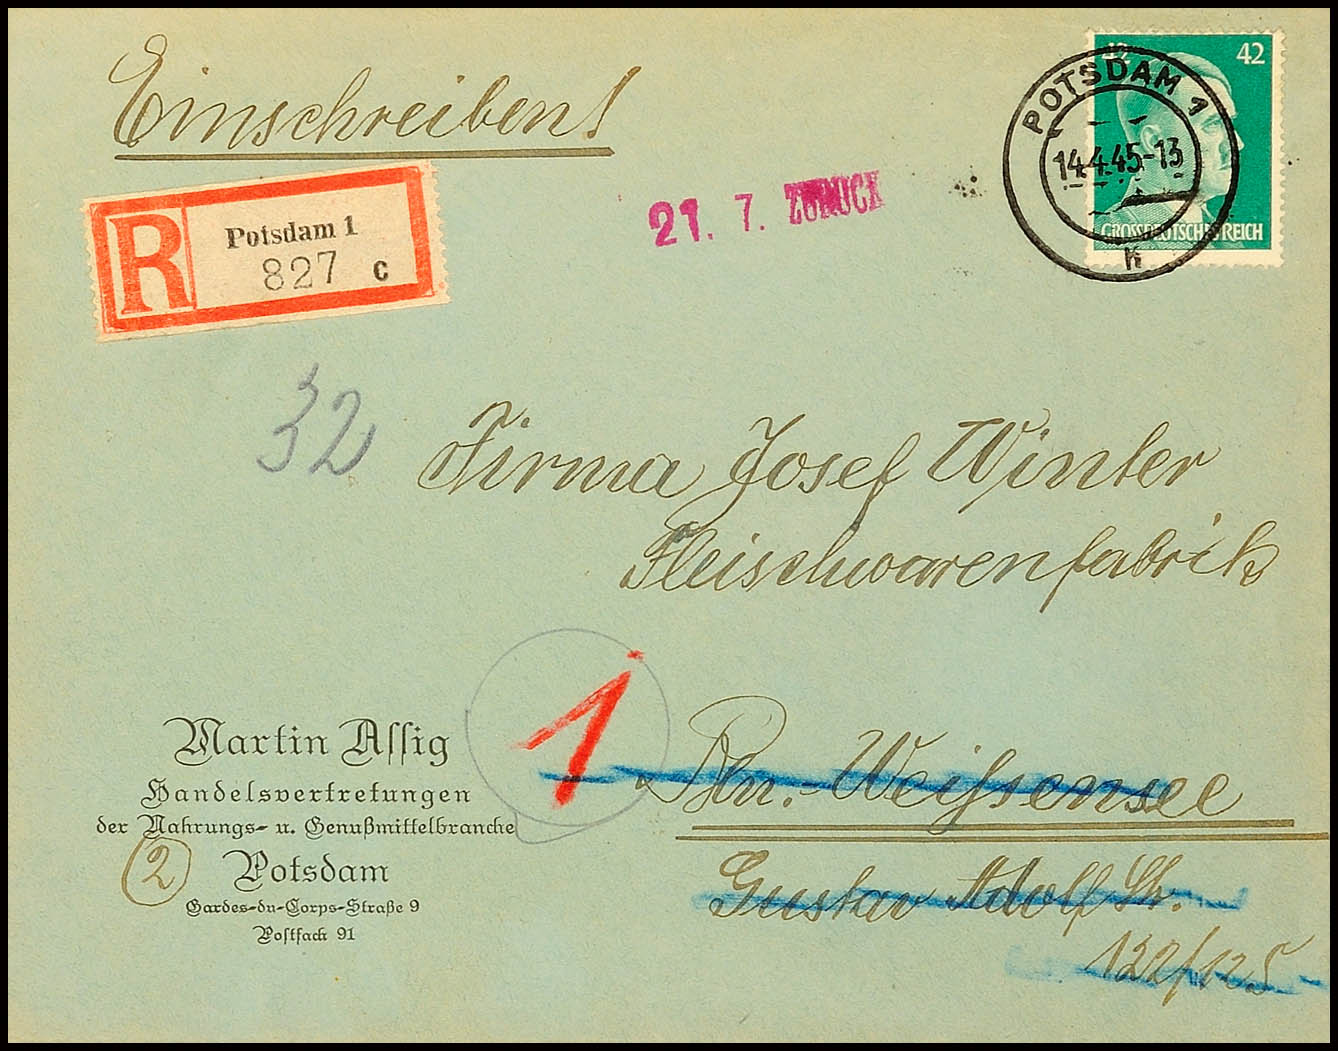 Einschreiben!
42 42
GROSSDEUTSCHES REICH
POTSDAM 1
14.4.45-13
k
R Potsdam 1
827 c
21. 7. ZURÜCK
32
Firma Josef Winter
Fleischwarenfabrik
1
Bln.-Weißensee
Gustav Adolf Str.
122/125
Martin Aſſig
Handelsvertretungen
der Nahrungs- u. Genußmittelbranche
(2) Potsdam
Gardes-du-Corps-Straße 9
Poſtfach 91